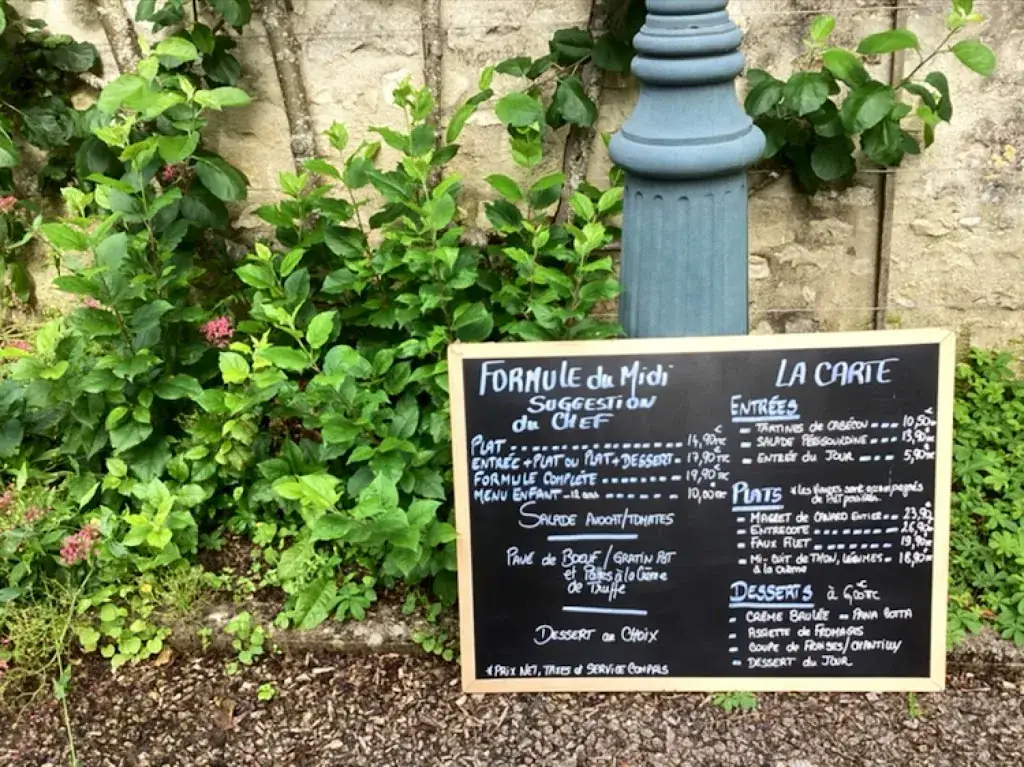 FORMULE du Midi
SUGGESTION
du CHEF
PLAT 14,90 TTC
ENTRÉE + PLAT OU PLAT + DESSERT 17,90 TTC
FORMULE COMPLÈTE 19,90 TTC
MENU ENFANT -12 ans 10,00 TTC
SALADE AVOCAT/TOMATES
PAVÉ de BOEUF/GRATIN PDT
et Pâtes à la Crème
de Truffe
DESSERT au CHOIX
*PRIX NET, TAXES et SERVICE COMPRIS
LA CARTE
ENTRÉES
- TARTINES de CABÉCOU 10,50
- SALADE PÉRIGOURDINE 13,90
- ENTRÉE du JOUR 5,90
PLATS *Les Viandes sont accompagnés
de PDT
- MAGRET de CANARD ENTIER 23,90
- ENTRECÔTE 26,90
- FAUX FILET 19,90
- MI-CUIT de THON, LÉGUMES 18,90
à la crème
DESSERTS à 6,00 TTC
- CRÈME BRULÉE - PANA COTTA
- ASSIETTE de FROMAGES
- COUPE de FRAISES/CHANTILLY
- DESSERT du JOUR